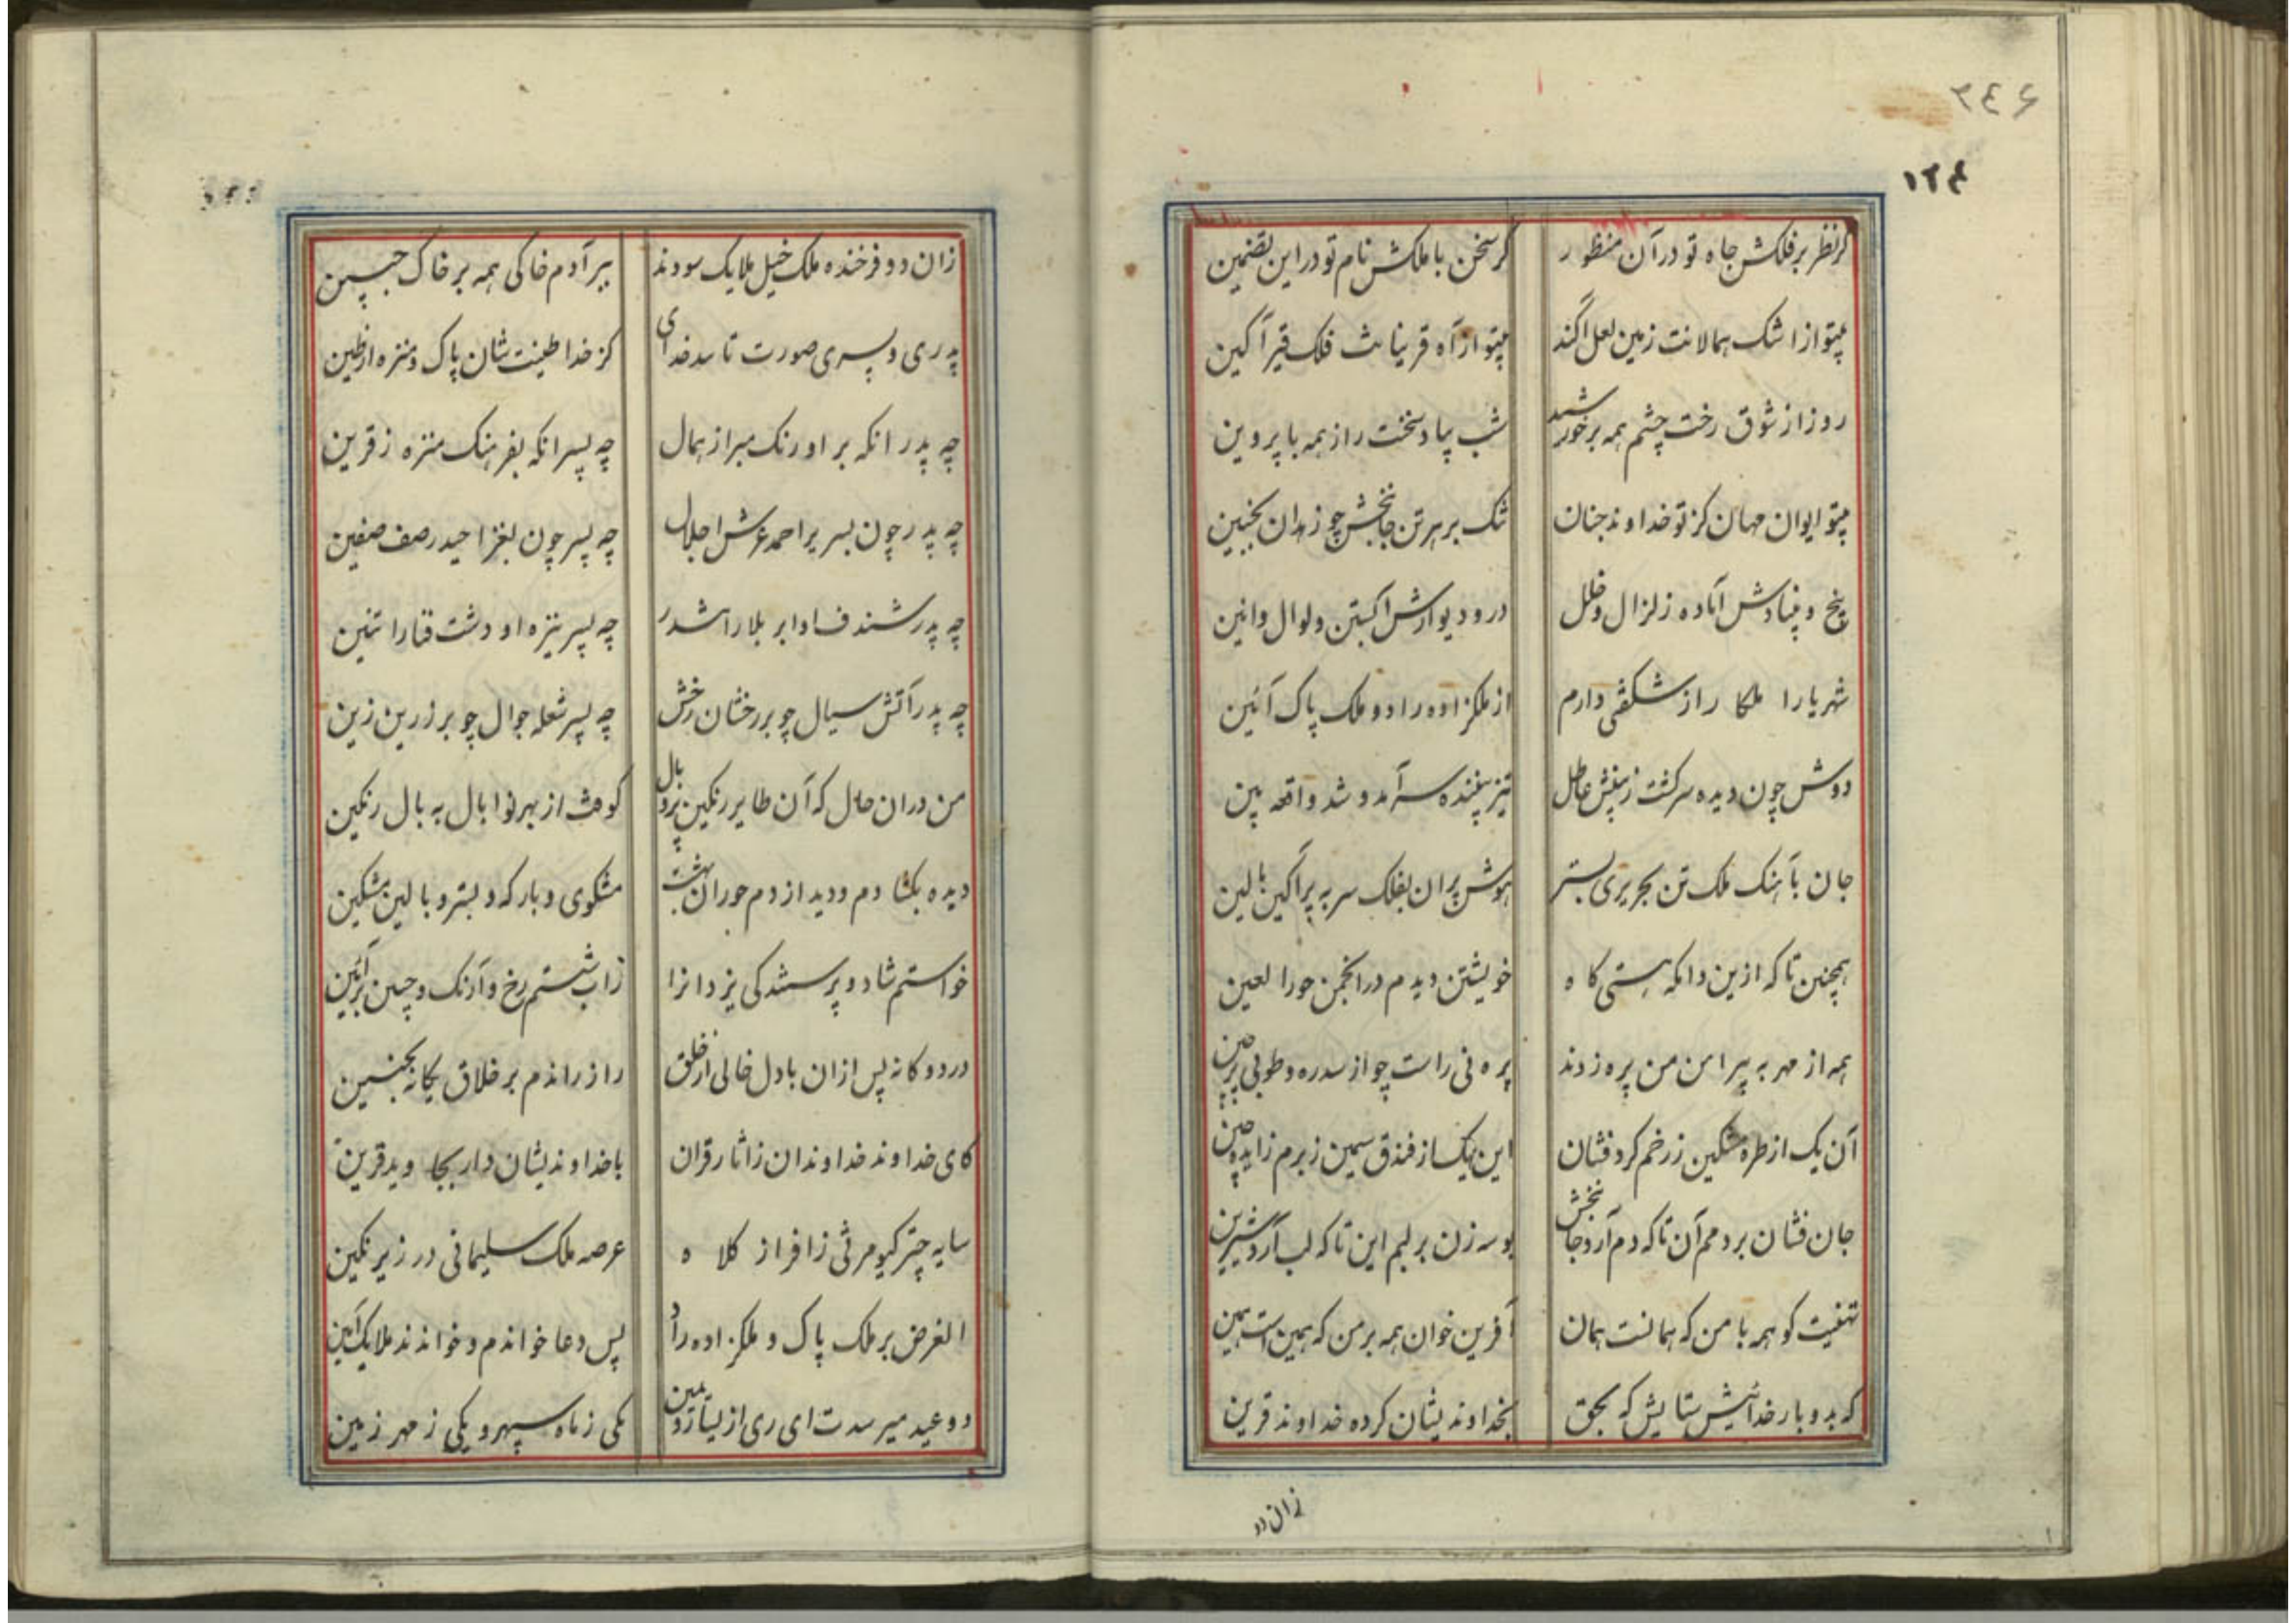 ۲۴۶
۱۲۴
گر نظر بر فلکش جاه تو در آن منظور گر سخن با ملکش نام تو در این تضمین
بیتو از اشک همالانت زمین لعل آکند بیتو از آه قرینانت فلک قیر آگین
روز از شوق رخت چشم همه بر خورشید شب بیاد سخنت راز همه با پروین
بیتو ایوان مهان کز تو خداوند جنان تنگ بر هر تن جانبخش چو زهدان بجنین
بیخ و بنیادش آماده زلزال و خلل در و دیوارش آبستن ولوال و انین
شهریارا ملکا راز شگفتی دارم از ملکزاده راد و ملک پاک آئین
دوش چون دیده سر گشت ز بینش عاطل تیز بیننده سر آمد و شد واقعه بین
جان بآهنگ ملک تن بحریری بستر هوش پران بفلک سر به پرآگین بالین
همچنین تا که ازین دامگه هستی کاه خویشتن دیدم در انجمن حورا لعین
همه از مهر به پیرامن من پره زدند پره نی راست چو از سدره و طوبی پرچین
آن یک از طره مشکین ز رخم گرد فشان این یک از فندق سیمین ز برم زاید چین
جان فشان بر دمم آن تا که دم آرد جانبخش بوسه زن بر لبم این تا که لب آرد شیرین
تهنیت گو همه با من که همانست همان آفرین خوان همه بر من که همین است همین
که بدو بار خدائیش ستایش که بحق بخداوندیشان کرده خداوند قرین
زان دو
زان دو فرخنده ملک خیل ملایک سودند بیر آدم خاکی همه بر خاک جبین
پدری و پسری صورت تأیید خدای کز خدا طینت شان پاک و منزه از طین
چه پدر انکه بر اورنک مبرا ز همال چه پسر انکه بفرهنک منزه ز قرین
چه پدر چون بسریر احمد عرش اجلال چه پسر چون بغزا حیدر صف صفین
چه پدر شندف او ابر بلا را تندر چه پسر نیزه او دشت فنا را تنین
چه پدر آتش سیال چو بر رخشان رخش چه پسر شعله جوال چو بر زرین زین
من دران حال که آن طایر رنگین پر و بال کوفت از بهر نوا بال به بال رنگین
دیده بگشادم و دید از دم حوران بهشت مشکوی و بارگه و بستر و بالین مشکین
خواستم شاد و پرستندگی یزدانرا زاب شستم رخ و آرنک و چین بر آئین
در دوگانه پس ازان با دل خالی از خلق راز راندم بر خلاق یگانه بجنین
کای خداوند خداوندان ز آثار قران با خداوندیشان دار بجاوید قرین
سایه چتر کیومرثی ز افراز کلاه عرصه ملک سلیمانی در زیر نگین
الغرض بر ملک پاک و ملکزاده راد پس دعا خواندم و خواندند ملایک آمین
دو عید میرسدت ای ری از یسار و یمین یکی ز ماه سپهر و یکی ز مهر زمین